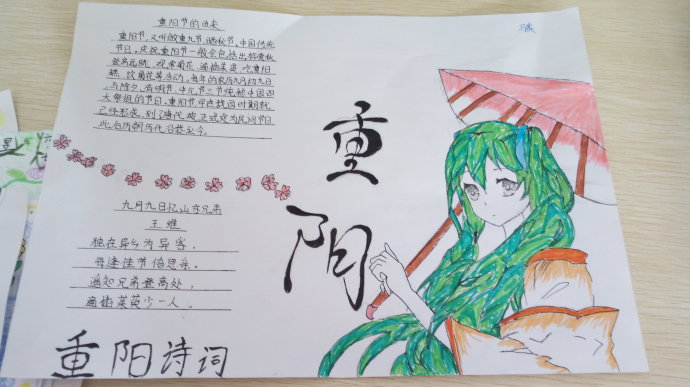 重阳节的由来
重阳节,又叫做重九节、晒秋节,中国传统
节日,庆祝重阳节一般会包括出游赏秋
登高远眺、观赏菊花、遍插茱萸、吃重阳
糕、饮菊花酒等活动,每年的农历九月初九日
与除夕、清明节、中元节三节统称中国四
大祭祖的节日。重阳节早在战国时期就
已经形成,到了唐代被正式定为民间节日
此后历朝历代沿袭至今。
九月九日忆山东兄弟
王维
独在异乡为异客,
每逢佳节倍思亲。
遥知兄弟登高处,
遍插茱萸少一人。
重阳诗词
重
阳